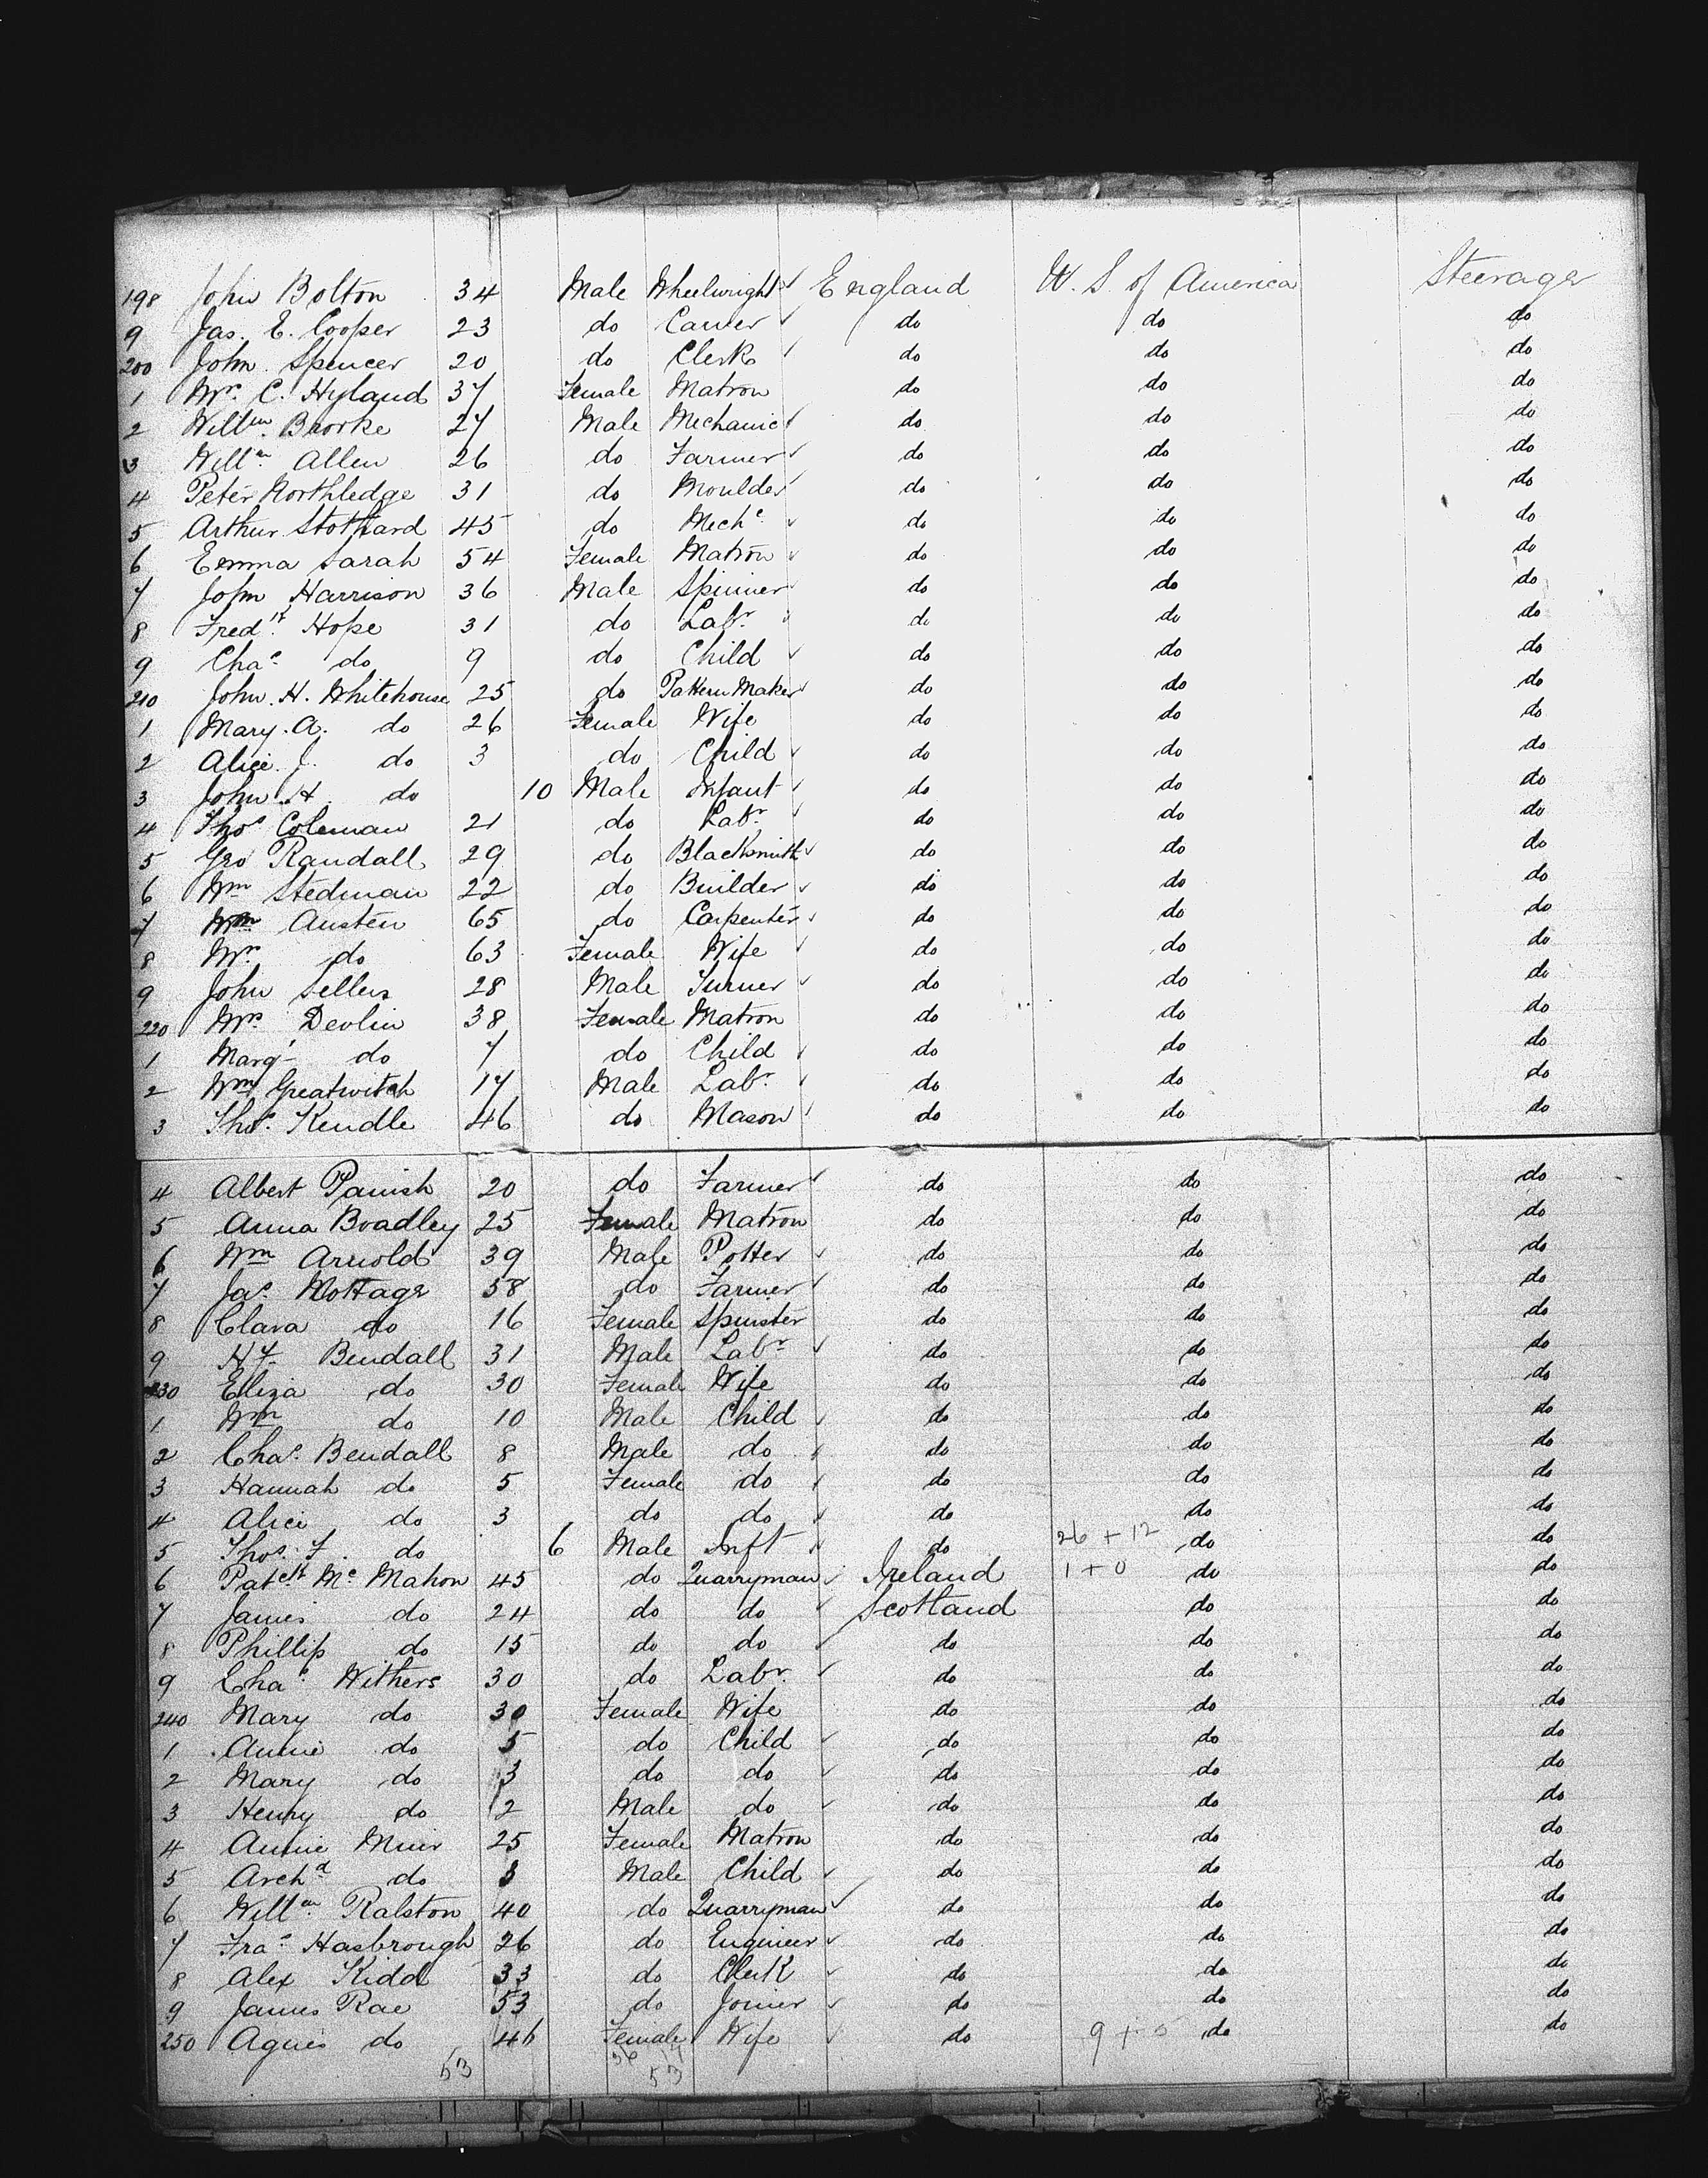 198 John Bolton 34 Male Wheelwright England U. S. of America Steerage
9 Jas. E. Cooper 23 do Carver do do do
200 John Spencer 20 do Clerk do do do
1 Mrs. C. Hyland 37 Female Matron do do do
2 Willm. Brooke 27 Male Mechanic do do do
3 Willm. Allen 26 do Farmer do do do
4 Peter Northledge 31 do Moulder do do do
5 Arthur Stothard 45 do Mechc. do do do
6 Emma Sarah 54 Female Matron do do do
7 John Harrison 36 Male Spinner do do do
8 Fredk. Hope 31 do Labr. do do do
9 Chas. do 9 do Child do do do
210 John. H. Whitehouse 25 do Pattern Maker do do do
1 Mary. A. do 26 Female Wife do do do
2 Alice. J. do 3 do Child do do do
3 John. H. do 10 Male Infant do do do
4 Thos Coleman 21 do Labr. do do do
5 Geo Randall 29 do Blacksmith do do do
6 Wm Stedman 22 do Builder do do do
7 Wm Austen 65 do Carpenter do do do
8 Mrs do 63 Female Wife do do do
9 John Sellers 28 Male Turner do do do
220 Mrs. Devlin 38 Female Matron do do do
1 Margt do 7 do Child do do do
2 Wm Greatwitch 17 Male Labr. do do do
3 Thos. Kendle 46 do Mason do do do
4 Albert Parrish 20 do Farmer do do do
5 Anna Bradley 25 Female Matron do do do
6 Wm Arnold 39 Male Potter do do do
7 Jas. Mottage 58 do Farmer do do do
8 Clara do 16 Female Spinster do do do
9 Hy. Bendall 31 Male Labr do do do
230 Eliza do 30 Female Wife do do do
1 Wm do 10 Male Child do do do
2 Chas. Bendall 8 Male do do do do
3 Hannah do 5 Female do do do do
4 Alice do 3 do do do do do
5 Thos. F. do 6 Male Inft do 26 + 12 do do
6 Patck. Mc Mahon 45 do Quarryman Ireland 1 + 0 do do
7 James do 24 do do Scotland do do
8 Phillip do 15 do do do do do
9 Chas. Withers 30 do Labr. do do do
240 Mary do 30 Female Wife do do do
1 Annie do 5 do Child do do do
2 Mary do 3 do do do do do
3 Henry do 2 Male do do do do
4 Annie Muir 25 Female Matron do do do
5 Archd do 3 Male Child do do do
6 Willm. Ralston 40 do Quarryman do do do
7 Fras. Hasbrough 26 do Engineer do do do
8 Alex Kidd 33 do Clerk do do do
9 James Rae 53 do Joiner do do do
250 Agnes do 46 Female Wife do 9 + 5 do do
53 36 17
53